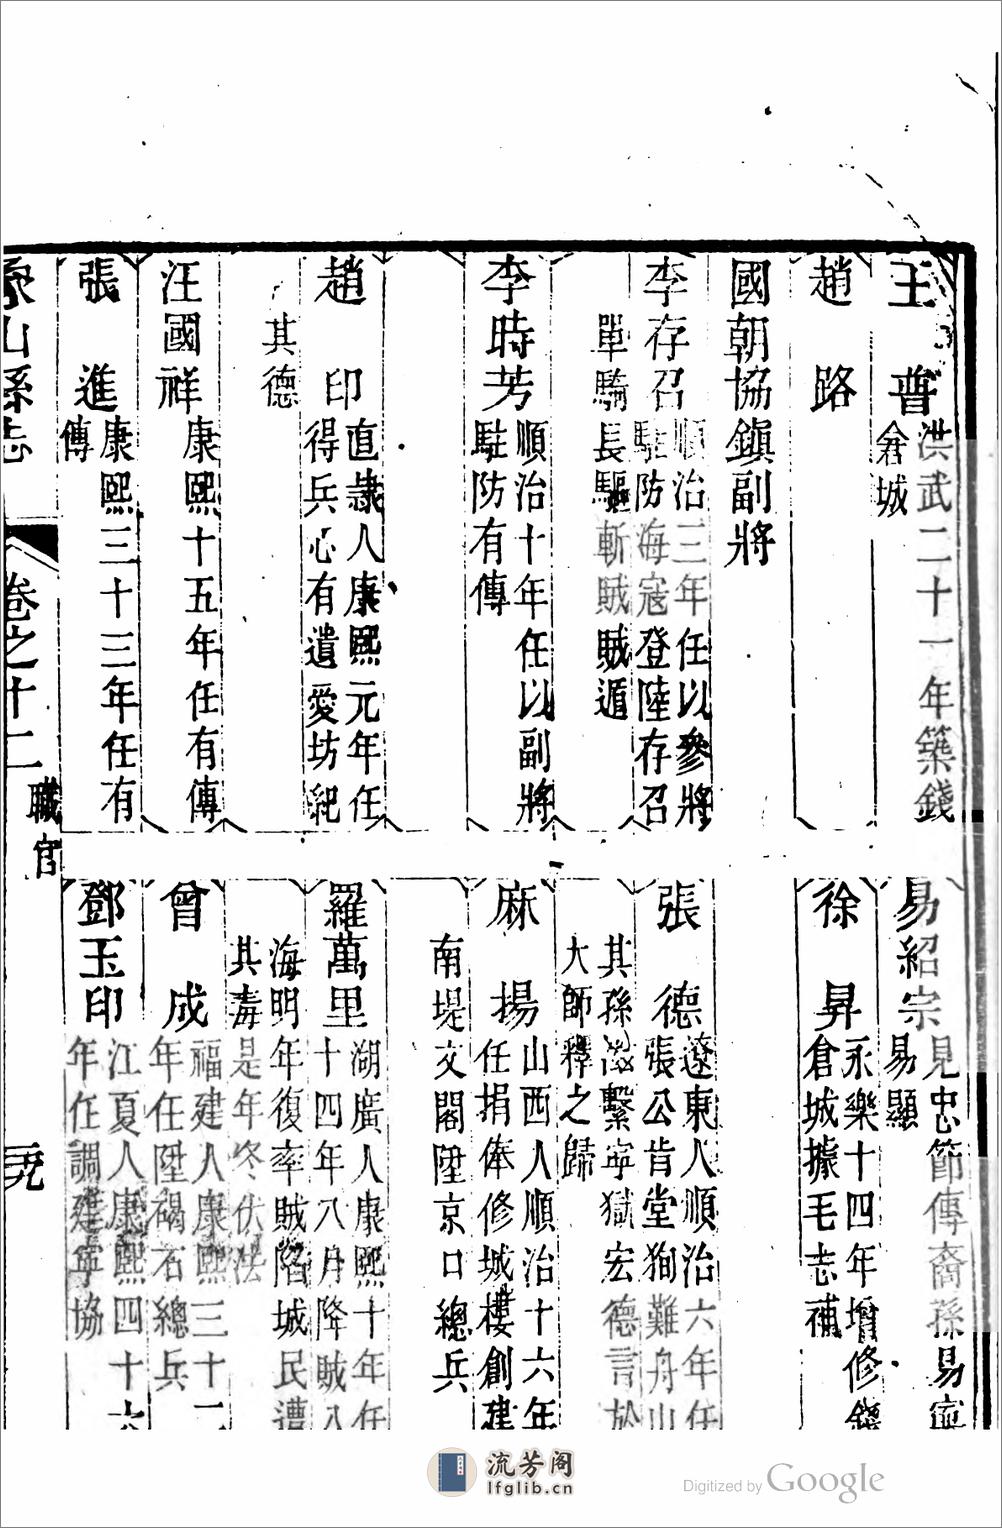 王普 洪武二十一年築錢
倉城
趙路
國朝協鎭副將
李存召 順治三年任以參將
駐防海寇登陸存召
單騎長驅斬賊賊遁
李時芳 順治十年任以副將
駐防有傳
趙印 直隷人康熙元年任
得兵心有遺愛坊紀
其德
汪國祥 康熙十五年任有傳
張進 康熙三十三年任有
傳
易紹宗 見忠節傳裔孫易
易顯
徐昇 永樂十四年增修錢
倉城據毛志補
張德 遼東人順治六年任
張公肯堂狥難舟山
其孫茂繫寧獄宏德言於
大師釋之歸
麻揚 山西人順治十六年
任捐俸修城樓創建
南堤文閣陞京口總兵
羅萬里 湖廣人康熙十年任
十四年八月降賊八
海明年復率賊陷城民遭
其毒是年冬伏法
曾成 福建人康熙三十二
年任陞碣石總兵
鄧玉印 江夏人康熙四十六
年任調建寧協
象山縣志
卷之十二
職官
三九
流芳阁
lfglib.cn
Digitized by Google